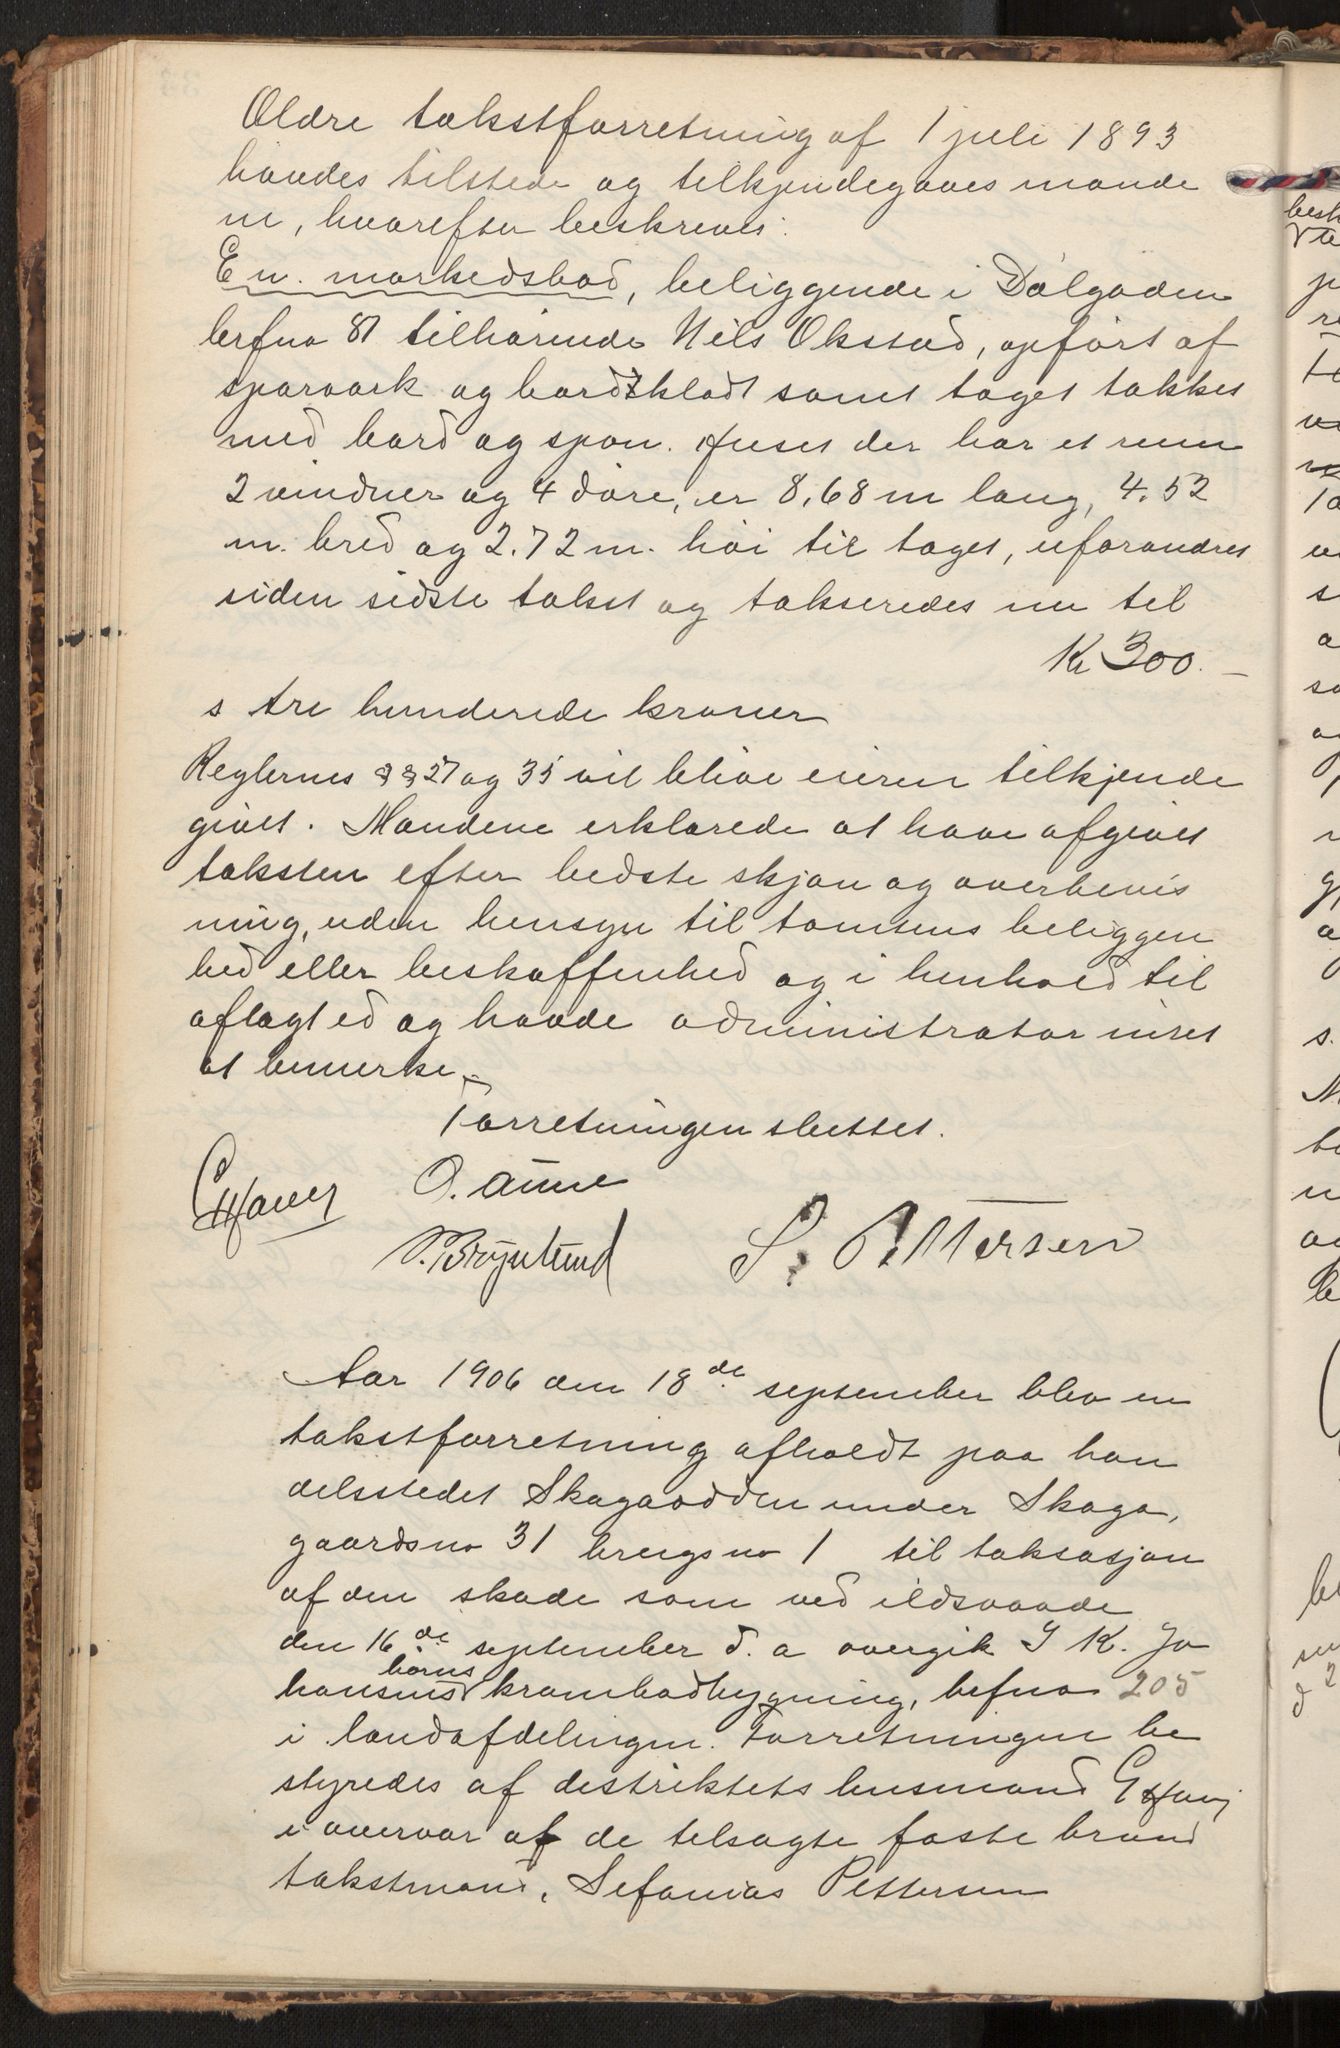 Ældre takstforretning af 1 juli 1893
havdes tilstede og tilkjendegaves mænde
ne, hvorefter beskreves:
En markedsbod, beliggende i Dalgaden
brfno 87 tilhørende Nils Okstad, opført af
sparværk og bordklædt samt taget tækket
med bord og spon. Huset der har et rum
2 vinduer og 4 døre, er 8,68 m lang, 4.52
m. bred og 2.72 m. høi til taget, uforandret
siden sidste takst og takseredes nu til
Kr 300.-
s tre hunderede kroner
Reglernes §§ 27 og 35 vil blive eieren tilkjende
givet. Mændene erklærede at have afgivet
taksten efter bedste skjøn og overbevis
ning, uden hensyn til tomtens beliggen
hed eller beskaffenhed og i henhold til
aflagt ed og havde administrator intet
at bemerke.
Forretningen sluttet.
O. Aune
EHaug
S. Pettersen
Aar 1906 den 18de september blev en
takstforretning afholdt paa han
delsstedet Skagaodden under Skaga,
gaardsno 31 brugsno 1 til taksasjon
af den skade som ved ildsvaade
den 16de september d. a overgik J K. Jo
børns
hansens krambodbygning, brfno 205
i landafdelingen. Forretningen be
styredes af distriktets lensmand E Haug
i overvær af de tilsagte faste brand
takstmænd, Sefanias Pettersen